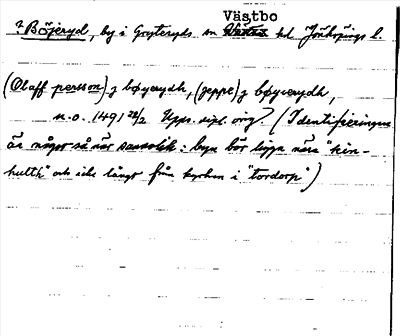 Västbo
? Böjeryd, by i Gryteryds sn hd. Jönköpings l.
(Olaff persson) j bøyerydh, (jeppe) j bøyerydh,
u.o. 1491 22/2 Upps. dipl. orig. (Identifieringen
är något så när sannolik: byn bör ligga nära "hin-
hulth" och icke långt från kyrkan i "tordorp")